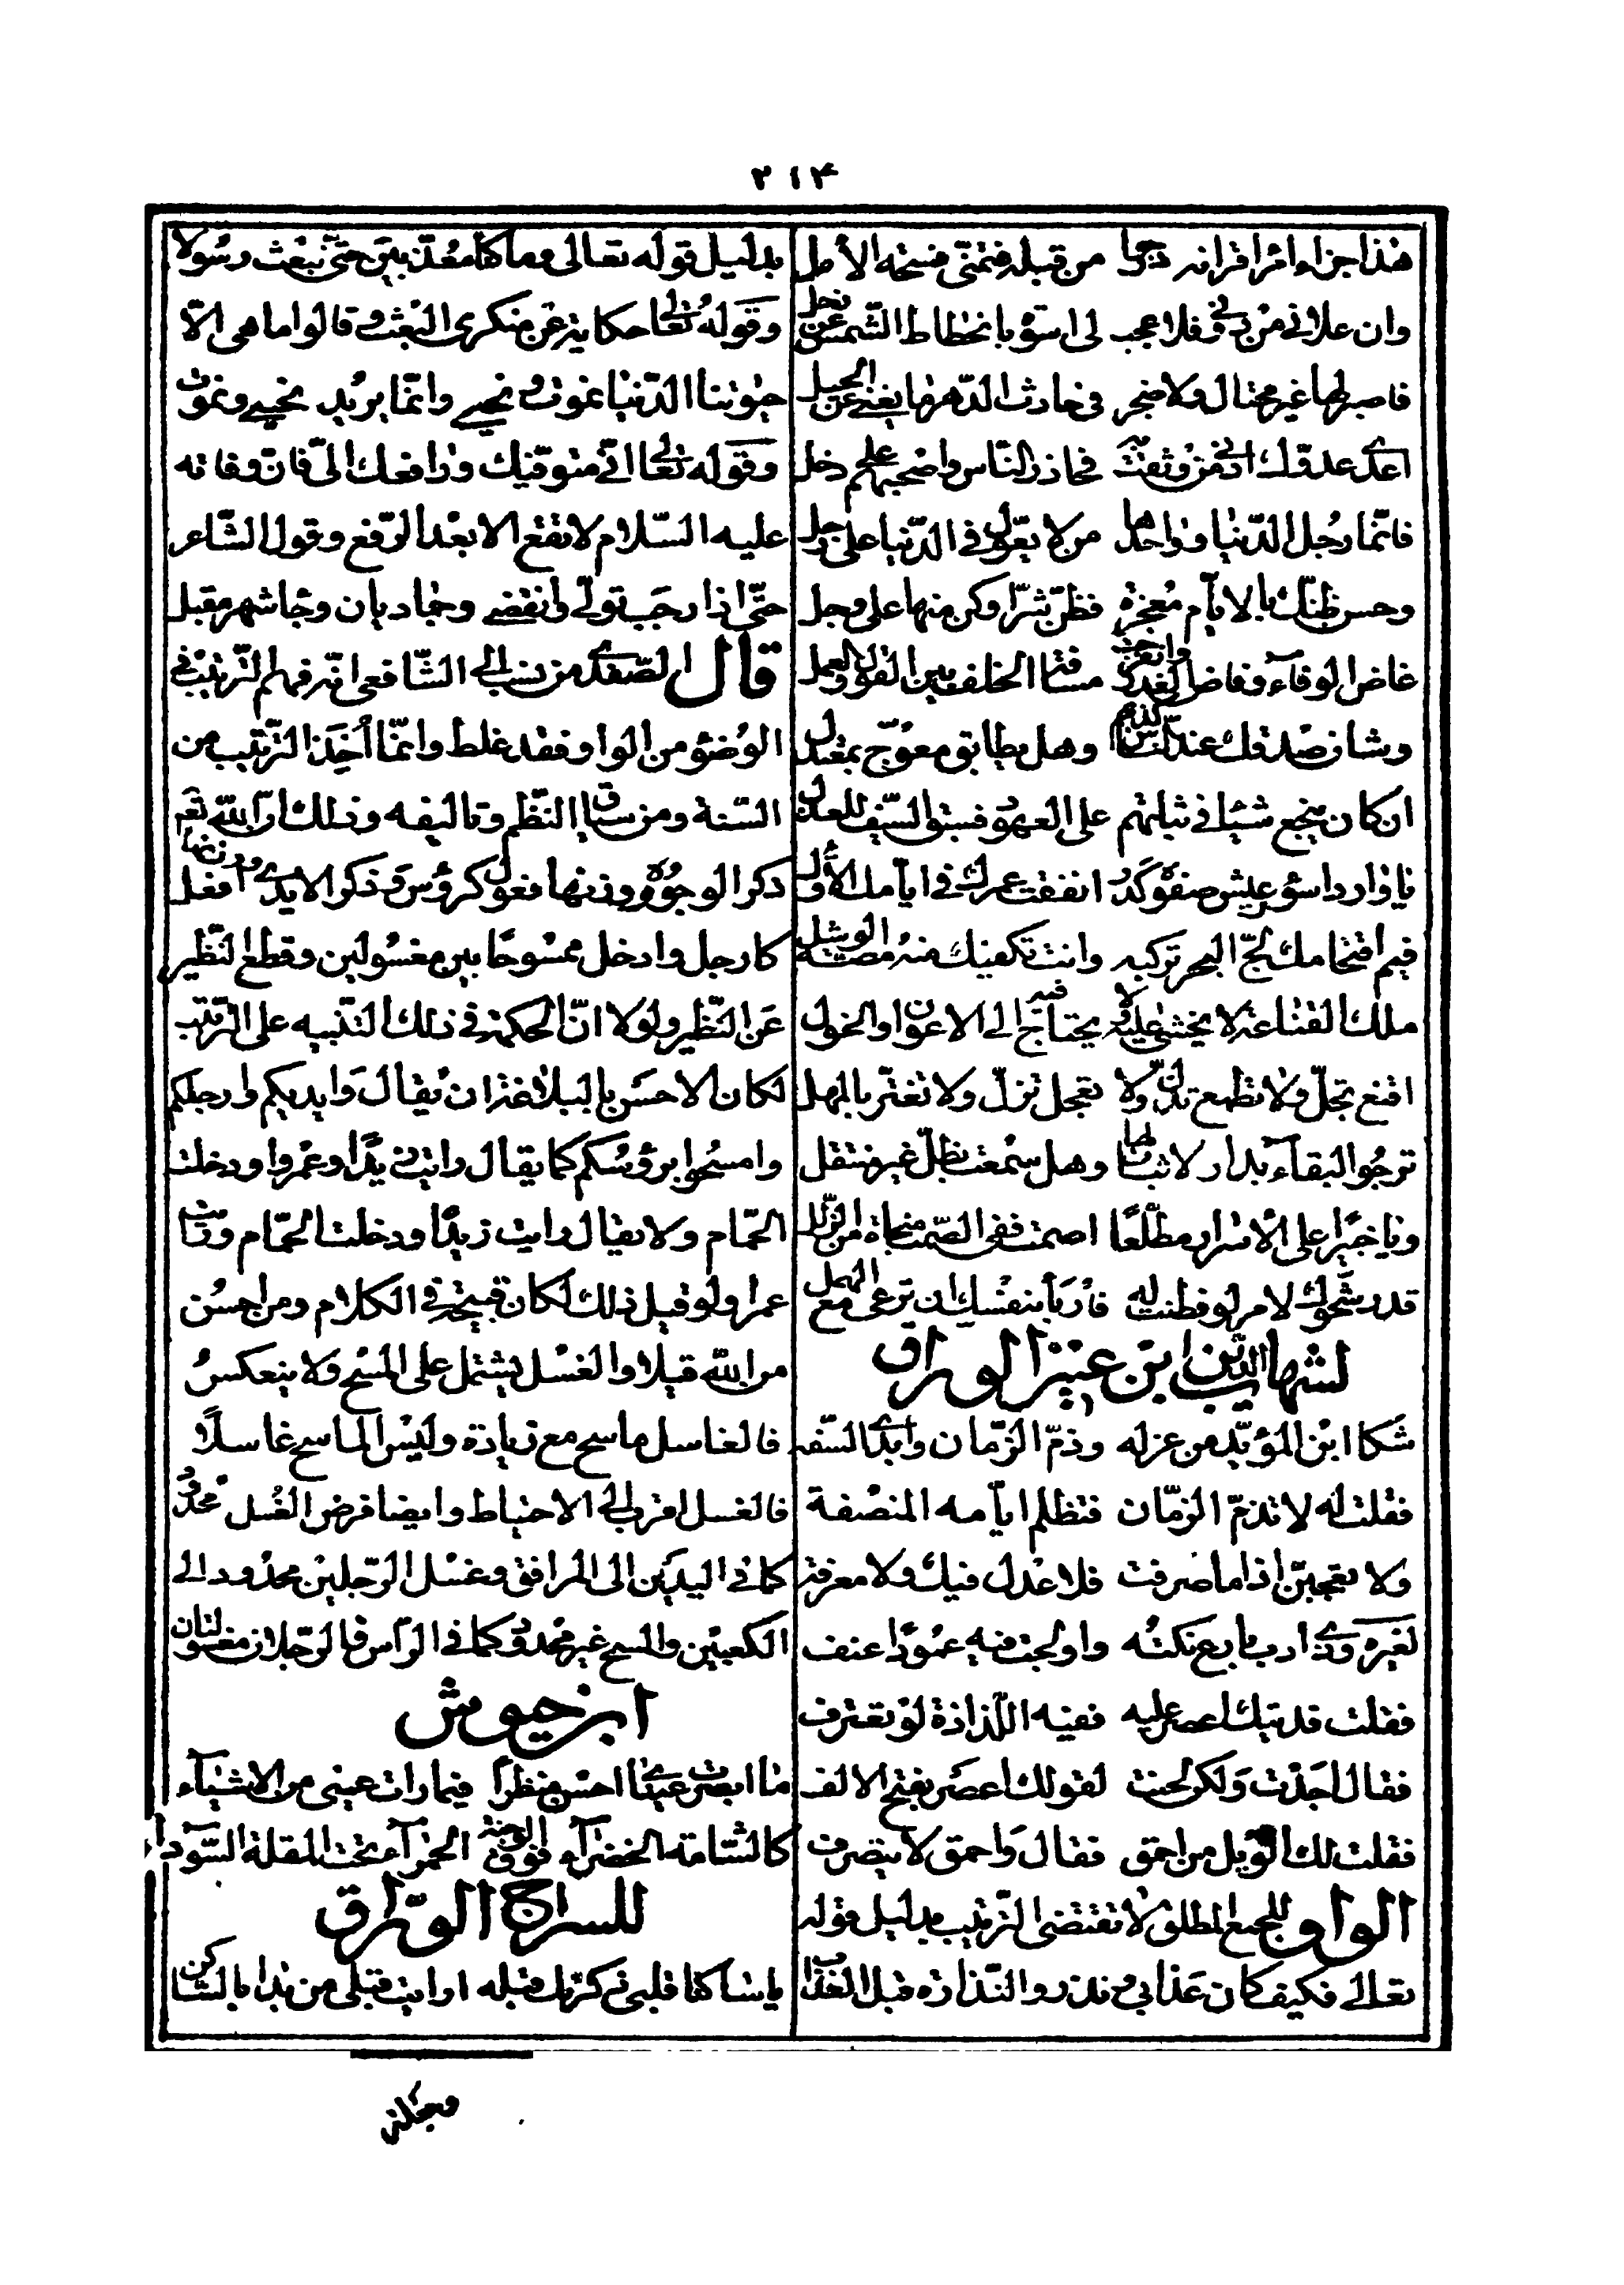 ٢١٤
هذا جزاء امرء اقرانه درجوا من قبله فتمنّى فسحة الأجل
وان علانى من دونى فلا عجب لى اسوة بانحطاط الشّمس عن زحل
فاصبر لها غير محتال ولا ضجر فى حادث الدّهر ما يغنى عن الحيل
اعدى عدوّك ادنى من وثقت به فحاذر النّاس واصحبهم على دخل
فانّما رجل الدّنيا وواحدها من لا يعوّل فى الدّنيا على رجل
وحسن ظنّك بالايّام معجزة فظنّ شرّا وكن منها على وجل
غاض الوفاء وفاض الغدر وانفرجت مسافة الخلف بين القول والعمل
وشان صدقك عند النّاس كذبهم وهل يطابق معوجّ بمعتدل
ان كان ينجع شيئا فى ثباتهم على العهود فسبق السّيف للعذل
يا واردا سؤر عيش صفوه كدر انفقت عمرك فى ايّامك الأول
فيم اقتحامك لجّ البحر تركبه وانت تكفيك منه مصّة الوشل
ملك القناعة لا يخشى عليه ولا يحتاج فيه الى الاعوان والخول
اقنع تجلّ ولا تطمع تذلّ ولا تعجل تزلّ ولا تغترّ بالمهل
ترجو البقاء بدار لا ثبات لها وهل سمعت بظلّ غير منتقل
ويا خبيرا على الأسرار مطّلعًا اصمت ففى الصّمت منجاة من الزّلل
قد رشّحوك لامر لو فطنت له فاربأ بنفسك ان ترعى مع الهمل
لشهاب الدين ابن عنيز الوراق
شكا ابن المؤيّد من عزله وذمّ الزّمان وابدى السّفه
فقلت له لا تذمّ الزمّان فتظلم ايّامه المنصفة
ولا تعجبنّ اذا ما صرفت فلا عدل فيك ولا معرفة
لغيره وذى ادب بارع نكته واولجت فيه عمودًا عنف
فقلت فديتك اعصر عليه ففيه اللّذاذة لو تعترف
فقال اجدت ولكن لحنت لقولك اعصر بفتح الالف
فقلت لك الويل من احمق فقال واحمق لا ينصرف
الواو للجمع المطلق لا تقتضى الترتيب بدليل قوله
تعالى فكيف كان عذابى ونذر والنذارة قبل العذاب
بدليل قوله تعالى وما كنّا معذّبين حتّى نبعث رسولا
وقوله تعالى حكاية عن منكرى البعث وقالوا ما هى الّا
حيوتنا الدّنيا نموت ونحيى وانّما يريد نحيى ونموت
وقوله تعالى انّى متوفّيك ورافعك الىّ فانّ وفاته
عليه السّلام لا تقع الا بعد الرّفع وقول الشّاعر
حتّى اذا رجب تولّى وانقضى وجماديان وجا شهر مقبل
قال الصّفدى من نسب الى الشّافعى انّه فهم التّرتيب فى
الوضوء من الواو فقد غلط وانّما أخذ الترتيب من
السّنة ومن سياق النّظم وتاليفه وذلك انّ اللّه تعم
ذكر الوجوه ووزنها فعول كرؤس وذكر الايدى ووزنها افعل
كارجل وادخل ممسوحًا بين مغسولين وقطع النّظير
عن النّظير ولولا انّ الحكمة فى ذلك التنبيه على الترتيب
لكان الاحسن بالبلاغة ان يقال وايديكم وارجلكم
وامسحوا برؤسكم كما يقال رايت زيدًا وعمروا ودخلت
الحمّام ولا يقال رايت زيدًا ودخلت الحمّام ورايت
عمرا ولو قيل ذلك لكان قبيحة فى الكلام ومن احسن
من اللّه قيلا والغسل يشتمل على المسح ولا ينعكس
فالغاسل ماسح مع زيادة وليس الماسح غاسلًا
فالغسل اقرب الى الاحتياط وايضا فرض الغسل محدود
كما فى اليدين الى المرافق وغسل الرّجلين محدود الى
الكعبين والمسح غير محدود كما فى الرّأس فالرّجلان مغسولتان
ابن حيوش
ما ابصرت عيناى احسن منظرا فيما رات عينى من الاشياء
كالشّامة الخضراء فوق الوجنة الحمراء تحت المقلة السّوداء
للسراج الورّاق
يا ساكنا قلبى ذكرتك قبله ارايت قبلى من بدا بالسّاكن
وجعلته